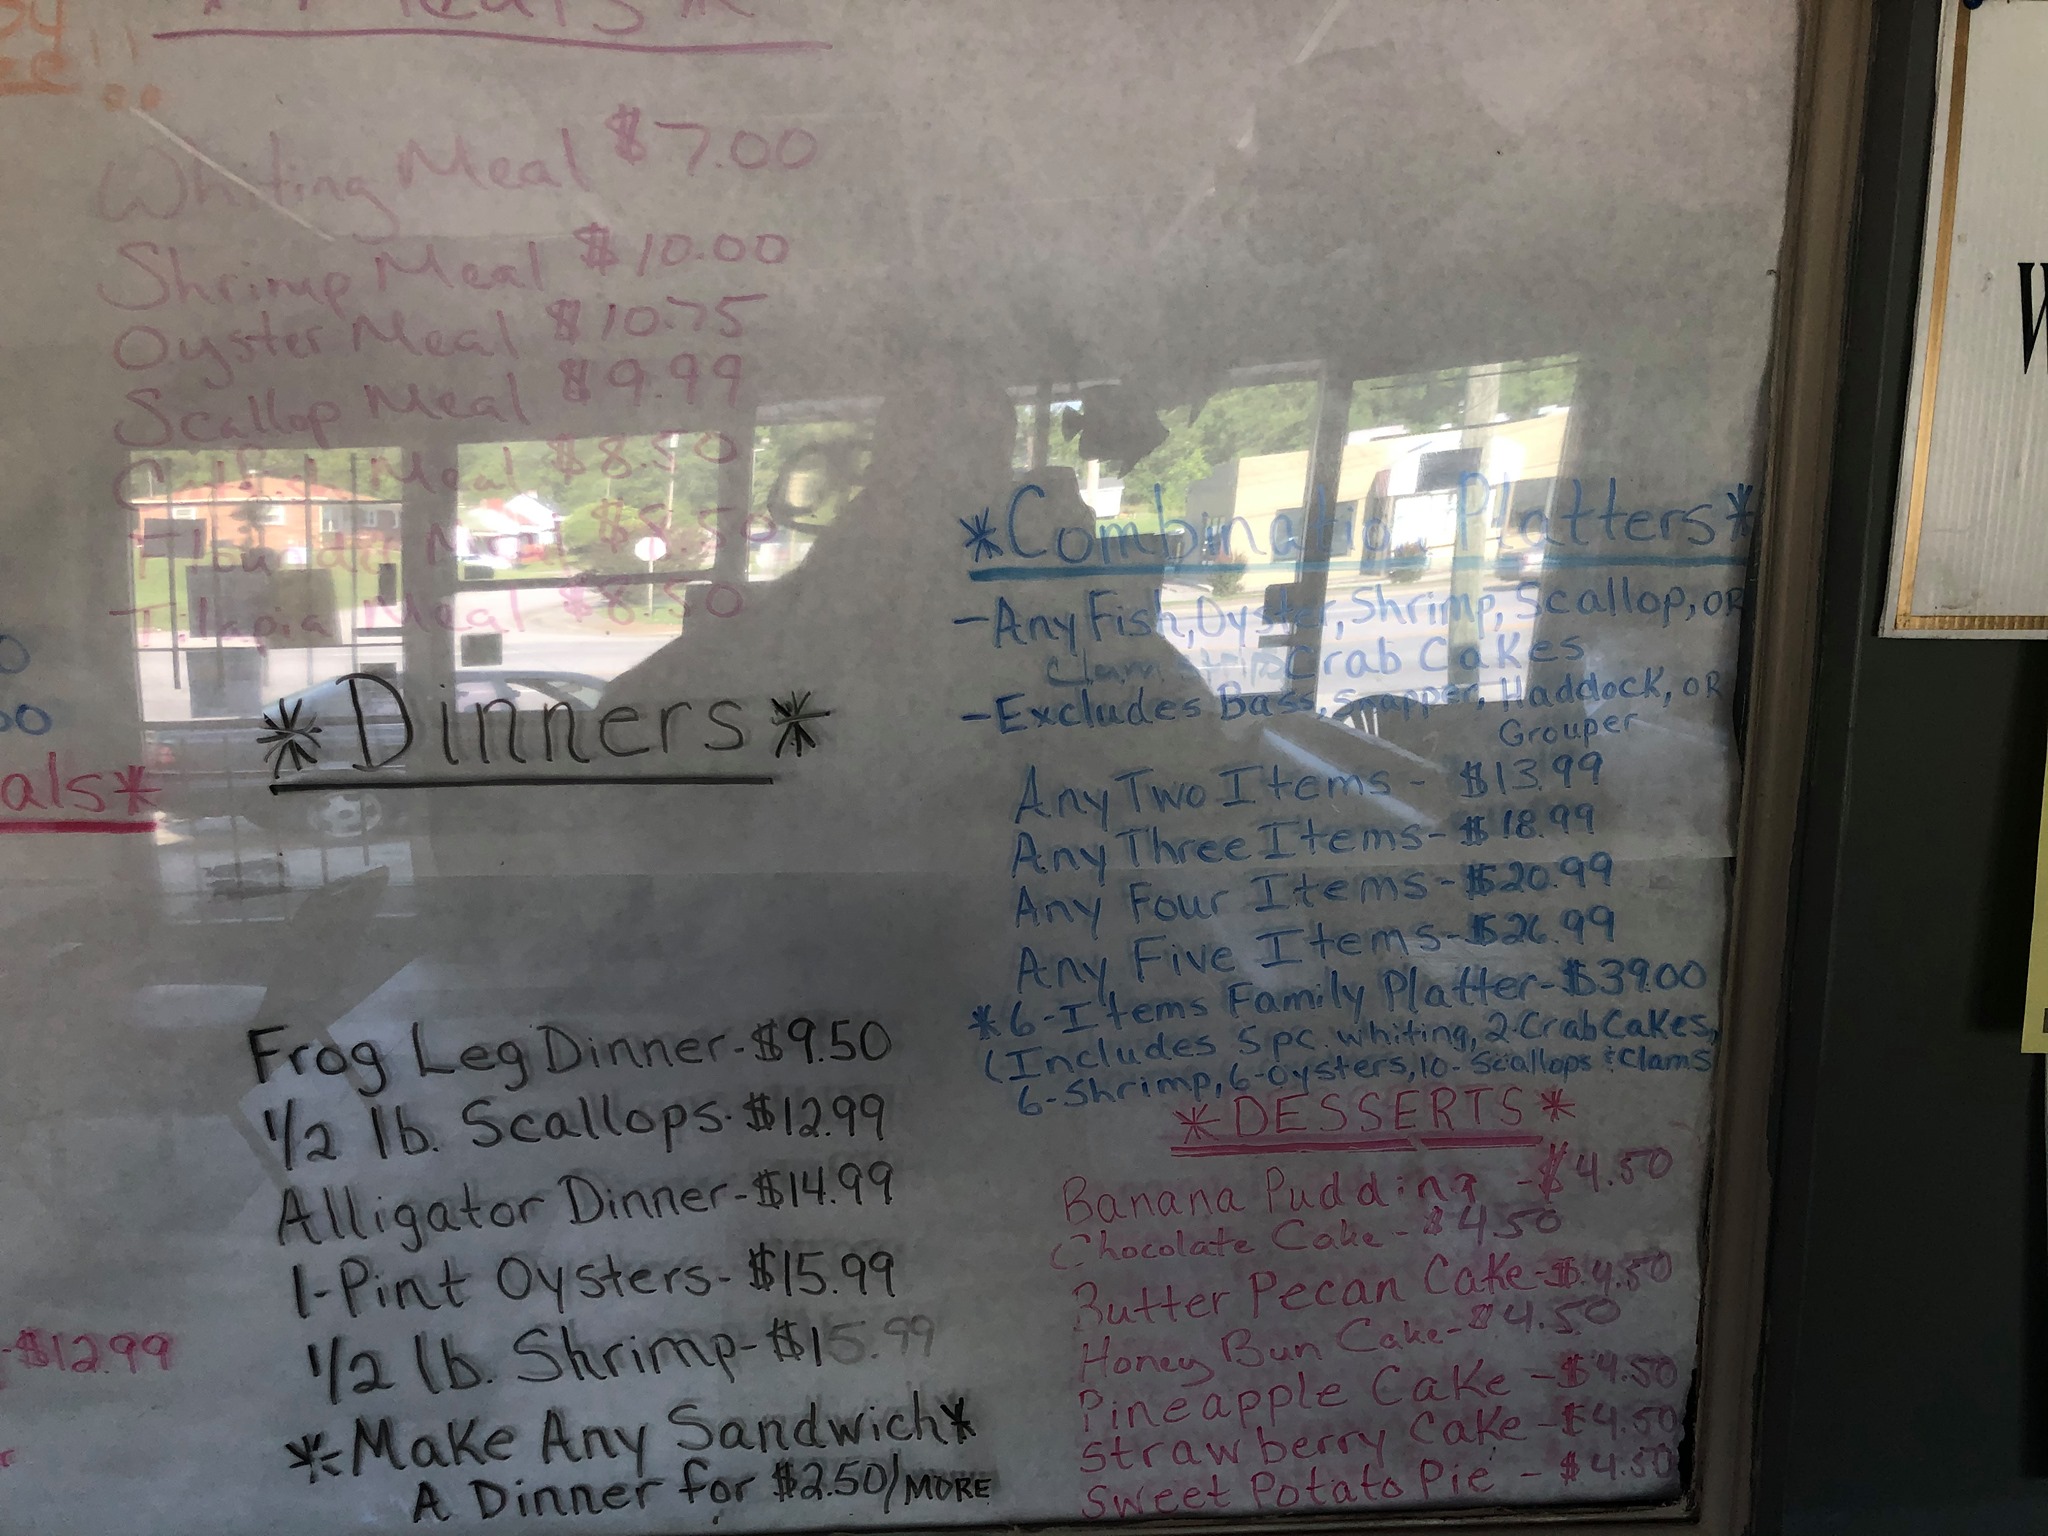 Whiting Meal $7.00
Shrimp Meal $10.00
Oyster Meal $10.75
Scallop Meal $9.99
Meal $8.50
Flounder Meal $8.50
Tilapia Meal $8.50
als*
-$12.99
*Dinners*
Frog Leg Dinner-$9.50
1/2 lb. Scallops-$12.99
Alligator Dinner-$14.99
1-Pint Oysters-$15.99
1/2 lb. Shrimp-$15.99
*Make Any Sandwich*
A Dinner for $2.50/MORE
*Combination Platters*
-Any Fish, Oyster, Shrimp, Scallop, OR
Clam strips Crab Cakes
-Excludes Bass, snapper, Haddock, OR
Grouper
Any Two Items - $13.99
Any Three Items-$18.99
Any Four Items-$20.99
Any Five Items-$26.99
*6-Items Family Platter-$39.00
(Includes 5 pc. whiting, 2-Crab Cakes,
6-Shrimp, 6-Oysters, 10-Scallops & Clams
*DESSERTS*
Banana Pudding -$4.50
Chocolate Cake-$4.50
Butter Pecan Cake-$4.50
Honey Bun Cake-$4.50
Pineapple Cake -$4.50
Strawberry Cake-$4.50
Sweet Potato Pie - $4.50
W